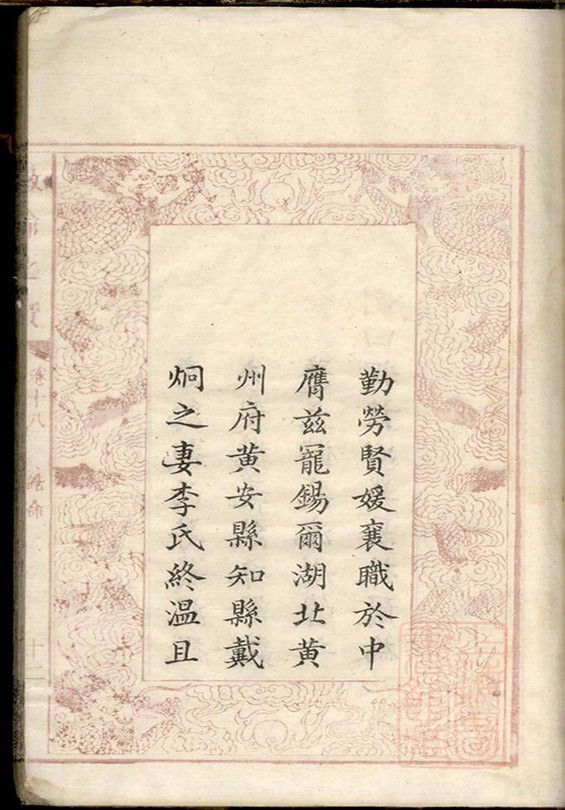 勤勞賢媛襄職於中
膺茲寵錫爾湖北黃
州府黃安縣知縣戴
炯之妻李氏終溫且
卷十八
誥命
十二